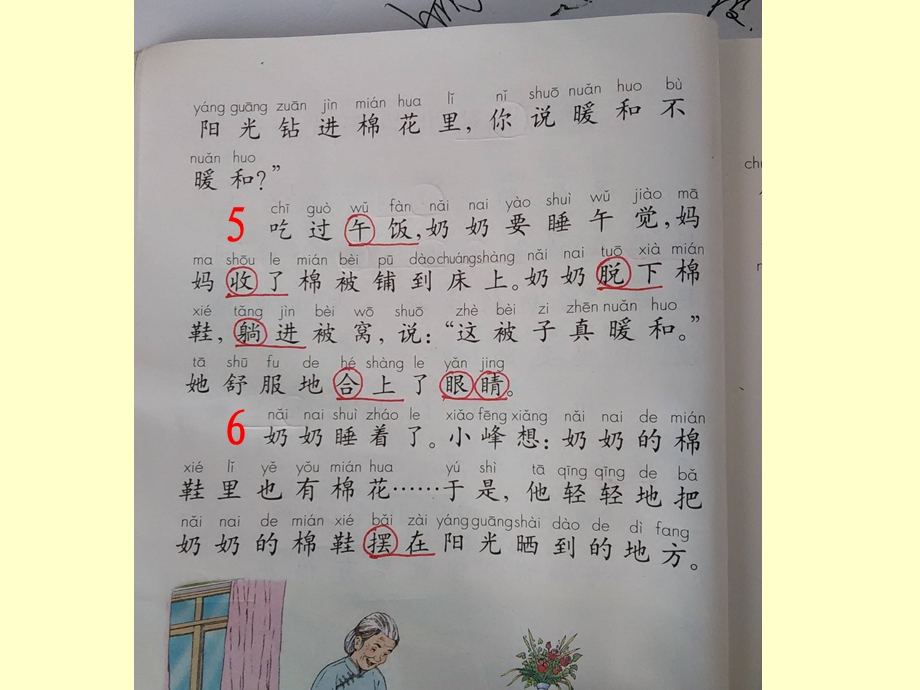 yáng guāng zuān jìn mián hua lǐ nǐ shuō nuǎn huo bù
阳光钻进棉花里，你说暖和不
nuǎn huo
暖和？”
chī guò wǔ fàn nǎi nai yào shuì wǔ jiào mā
5 吃过午饭，奶奶要睡午觉，妈
ma shōu le mián bèi pū dào chuáng shàng nǎi nai tuō xià mián
妈收了棉被铺到床上。奶奶脱下棉
xié tǎng jìn bèi wō shuō zhè bèi zi zhēn nuǎn huo
鞋，躺进被窝，说：“这被子真暖和。”
tā shū fu de hé shàng le yǎn jing
她舒服地合上了眼睛。
nǎi nai shuì zháo le xiǎo fēng xiǎng nǎi nai de mián
6 奶奶睡着了。小峰想：奶奶的棉
xié lǐ yě yǒu mián hua yú shì tā qīng qīng de bǎ
鞋里也有棉花……于是，他轻轻地把
nǎi nai de mián xié bǎi zài yáng guāng shài dào de dì fang
奶奶的棉鞋摆在阳光晒到的地方。